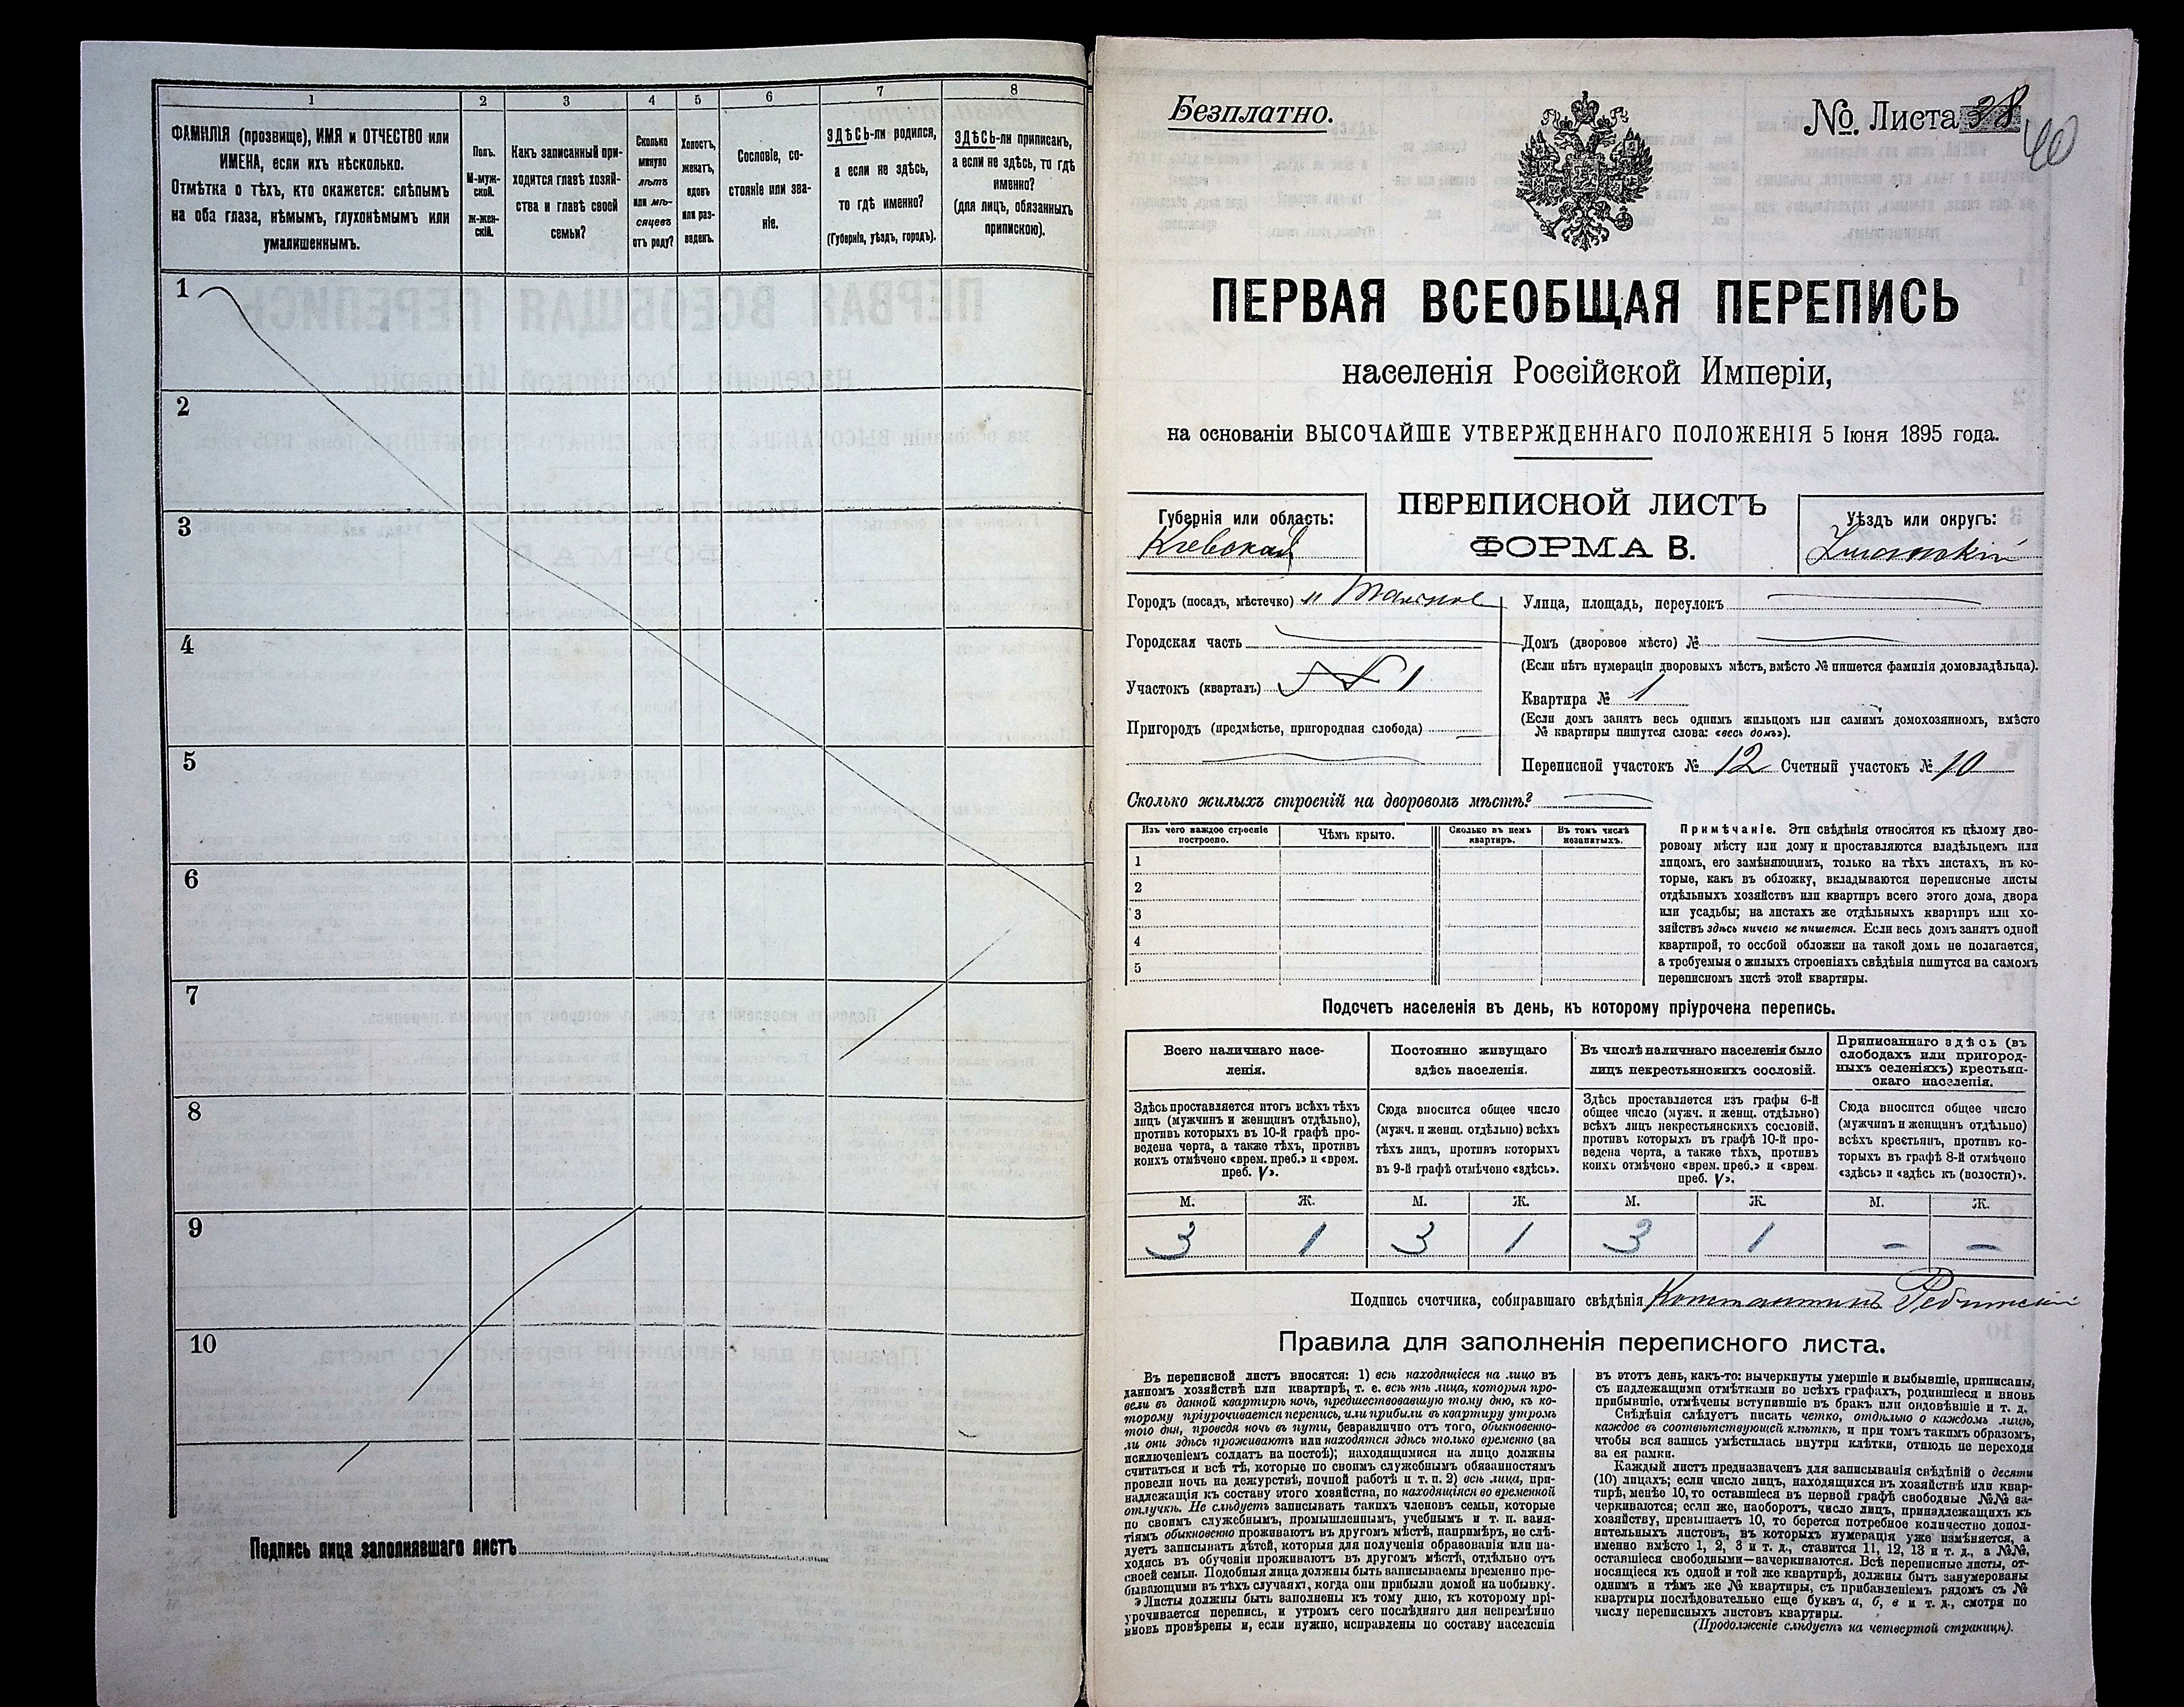 1 2 3 4 5 6 7 8
ФАМИЛІЯ (прозвище), ИМЯ и ОТЧЕСТВО или
ИМЕНА, если ихъ нѣсколько.
Отмѣтка о тѣхъ, кто окажется: слѣпымъ
на оба глаза, нѣмымъ, глухонѣмымъ или
умалишеннымъ.
Полъ.
М-муж-
ской.
Ж-жен-
скій.
Какъ записанный при-
ходится главѣ хозяй-
ства и главѣ своей
семьи?
Сколько
минуло
лѣтъ
или мѣ-
сяцевъ
отъ роду?
Холостъ,
женатъ,
вдовъ
или раз-
веденъ.
Сословіе, со-
стояніе или зва-
ніе.
ЗДѢСЬ-ли родился,
а если не здѣсь,
то гдѣ именно?
(Губернія, уѣздъ, городъ).
ЗДѢСЬ-ли приписанъ,
а если не здѣсь, то гдѣ
именно?
(для лицъ, обязанныхъ
припискою).
1
2
3
4
5
6
7
8
9
10
Подпись лица заполнявшаго листъ
Безплатно.
№ Листа 38
40
ПЕРВАЯ ВСЕОБЩАЯ ПЕРЕПИСЬ
населенія Россійской Имперіи,
на основаніи ВЫСОЧАЙШЕ УТВЕРЖДЕННАГО ПОЛОЖЕНІЯ 5 Іюня 1895 года.
Губернія или область:
Кіевская
ПЕРЕПИСНОЙ ЛИСТЪ
ФОРМА В.
Уѣздъ или округъ:
Уманскій
Городъ (посадъ, мѣстечко) м Тальное
Городская часть
Участокъ (кварталъ) № 1
Пригородъ (предмѣстье, пригородная слобода)
Улица, площадь, переулокъ
Домъ (дворовое мѣсто) №
(Если нѣтъ нумераціи дворовыхъ мѣстъ, вмѣсто № пишется фамилія домовладѣльца).
Квартира № 1
(Если домъ занятъ весь однимъ жильцомъ или самимъ домохозяиномъ, вмѣсто
№ квартиры пишутся слова: «весь домъ»).
Переписной участокъ № 12 Счетный участокъ № 10
Сколько жилыхъ строеній на дворовомъ мѣстѣ?
Изъ чего каждое строеніе
построено.
Чѣмъ крыто.
Сколько въ немъ
квартиръ.
Въ томъ числѣ
незанятыхъ.
1
2
3
4
5
Примѣчаніе. Эти свѣдѣнія относятся къ цѣлому дво-
ровому мѣсту или дому и проставляются владѣльцемъ или
лицомъ, его замѣняющимъ, только на тѣхъ листахъ, въ ко-
торые, какъ въ обложку, вкладываются переписные листы
отдѣльныхъ хозяйствъ или квартиръ всего этого дома, двора
или усадьбы; на листахъ же отдѣльныхъ квартиръ или хо-
зяйствъ здѣсь ничего не пишется. Если весь домъ занятъ одной
квартирой, то особой обложки на такой домъ не полагается,
а требуемыя о жилыхъ строеніяхъ свѣдѣнія пишутся на самомъ
переписномъ листѣ этой квартиры.
Подсчетъ населенія въ день, къ которому пріурочена перепись.
Всего наличнаго насе-
ленія.
Постоянно живущаго
здѣсь населенія.
Въ числѣ наличнаго населенія было
лицъ некрестьянскихъ сословій.
Приписаннаго здѣсь (въ
слободахъ или пригород-
ныхъ селеніяхъ) крестьян-
скаго населенія.
Здѣсь проставляется итогъ всѣхъ тѣхъ
лицъ (мужчинъ и женщинъ отдѣльно),
противъ которыхъ въ 10-й графѣ про-
ведена черта, а также тѣхъ, противъ
коихъ отмѣчено «врем. преб.» и «врем.
преб. V».
Сюда вносится общее число
(мужч. и женщ. отдѣльно) всѣхъ
тѣхъ лицъ, противъ которыхъ
въ 9-й графѣ отмѣчено «здѣсь».
Здѣсь проставляется изъ графы 6-й
общее число (мужч. и женщ. отдѣльно)
всѣхъ лицъ некрестьянскихъ сословій,
противъ которыхъ въ графѣ 10-й про-
ведена черта, а также тѣхъ, противъ
коихъ отмѣчено «врем. преб.» и «врем.
преб. V».
Сюда вносится общее число
(мужчинъ и женщинъ отдѣльно)
всѣхъ крестьянъ, противъ ко-
торыхъ въ графѣ 8-й отмѣчено
«здѣсь» и «здѣсь къ (волости)».
М. Ж. М. Ж. М. Ж. М. Ж.
3 1 3 1 3 1 – –
Подпись счетчика, собиравшаго свѣдѣнія Константинъ
Правила для заполненія переписного листа.
Въ переписной листъ вносятся: 1) всѣ находящіеся на лицо въ
данномъ хозяйствѣ или квартирѣ, т. е. всѣ тѣ лица, которыя про-
вели въ данной квартирѣ ночь, предшествовавшую тому дню, къ ко-
торому пріурочивается перепись, или прибыли въ квартиру утромъ
того дня, проведя ночь въ пути, безразлично отъ того, обыкновенно-
ли они здѣсь проживаютъ или находятся здѣсь только временно (за
исключеніемъ солдатъ на постоѣ); находящимися на лицо должны
считаться и всѣ тѣ, которые по своимъ служебнымъ обязанностямъ
провели ночь на дежурствѣ, ночной работѣ и т. п. 2) всѣ лица, при-
надлежащія къ составу этого хозяйства, но находящіяся во временной
отлучкѣ. Не слѣдуетъ записывать такихъ членовъ семьи, которые
по своимъ служебнымъ, промышленнымъ, учебнымъ и т. п. заня-
тіямъ обыкновенно проживаютъ въ другомъ мѣстѣ, напримѣръ, не слѣ-
дуетъ записывать дѣтей, которыя для полученія образованія или на-
ходясь въ обученіи проживаютъ въ другомъ мѣстѣ, отдѣльно отъ
своей семьи. Подобныя лица должны быть записываемы временно пре-
бывающими въ тѣхъ случаяхъ, когда они прибыли домой на побывку.
Листы должны быть заполнены къ тому дню, къ которому прі-
урочивается перепись, и утромъ сего послѣдняго дня непремѣнно
вновь провѣрены и, если нужно, исправлены по составу населенія
въ этотъ день, какъ-то: вычеркнуты умершіе и выбывшіе, приписаны,
съ надлежащими отмѣтками во всѣхъ графахъ, родившіеся и вновь
прибывшіе, отмѣчены вступившіе въ бракъ или овдовѣвшіе и т. д.
Свѣдѣнія слѣдуетъ писать четко, отдѣльно о каждомъ лицѣ,
каждое въ соотвѣтствующей клѣткѣ, и при томъ такимъ образомъ,
чтобы вся запись умѣстилась внутри клѣтки, отнюдь не переходя
за ея рамки.
Каждый листъ предназначенъ для записыванія свѣдѣній о десяти
(10) лицахъ; если число лицъ, находящихся въ хозяйствѣ или квар-
тирѣ, менѣе 10, то оставшіеся въ первой графѣ свободные №№ за-
черкиваются; если же, наоборотъ, число лицъ, принадлежащихъ къ
хозяйству, превышаетъ 10, то берется потребное количество допол-
нительныхъ листовъ, въ которыхъ нумерація уже измѣняется, а
именно вмѣсто 1, 2, 3 и т. д., ставится 11, 12, 13 и т. д., а №№,
оставшіеся свободными—зачеркиваются. Всѣ переписные листы, от-
носящіеся къ одной и той же квартирѣ, должны быть занумерованы
однимъ и тѣмъ же № квартиры, съ прибавленіемъ рядомъ съ №
квартиры послѣдовательно еще буквъ а, б, в и т. д., смотря по
числу переписныхъ листовъ квартиры.
(Продолженіе слѣдуетъ на четвертой страницѣ).